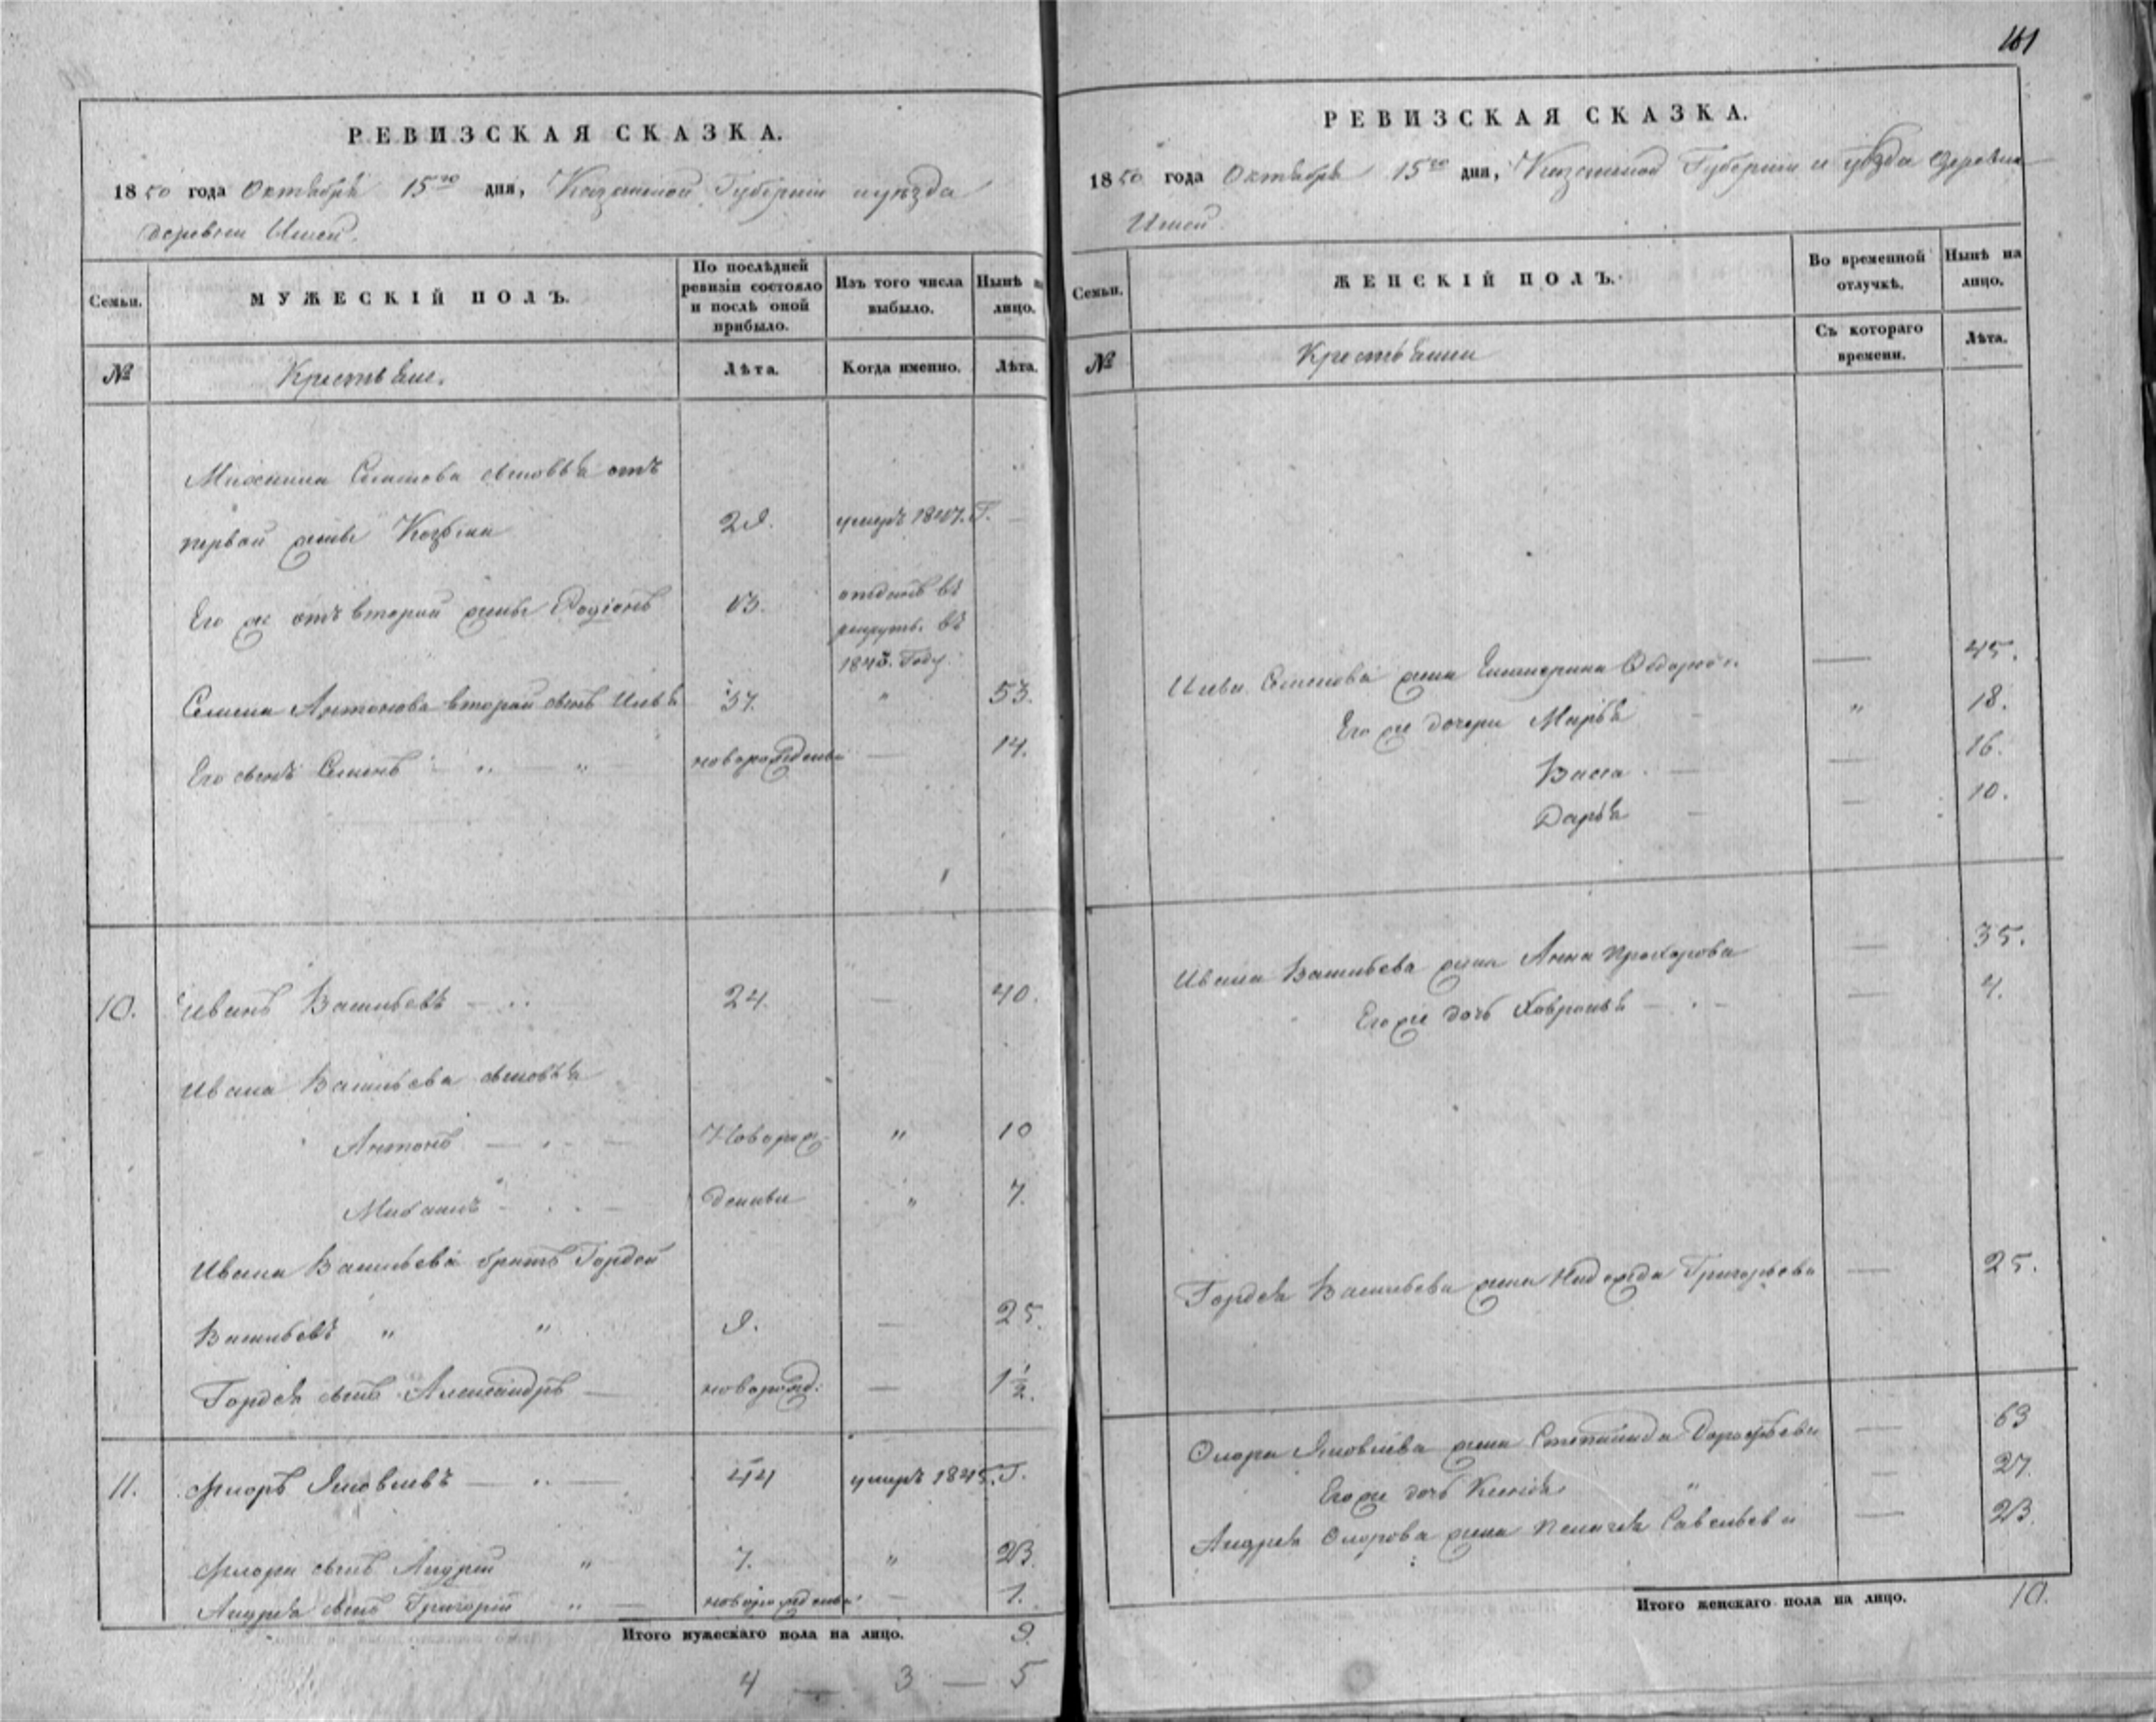 161
РЕВИЗСКАЯ СКАЗКА.
1850 года Октября 15го дня, Казанской Губернии и уѣзда
деревни
Семьи.
МУЖЕСКІЙ ПОЛЪ.
По послѣдней ревизіи состояло и послѣ оной прибыло.
Изъ того числа выбыло.
Нынѣ на лицо.
№
Крестьяне.
Лѣта.
Когда именно.
Лѣта.
сыновья отъ
первой жены Козьма 29. умеръ 1847. Г. —
Его же отъ второй жены Родіонъ 13. отданъ въ
рекруты въ
184 Году
Семена Антонова второй сынъ Илья 37. " 53.
Его сынъ Семенъ — " — " новорожденный — 14.
10. Иванъ Васильевъ — 24. — 40.
Ивана Васильева сыновья
Антонъ — — Новорож- " 10
Михаилъ — — денные " 7.
Ивана Васильева братъ Гордей
Васильевъ " " 9. — 25.
Гордея сынъ Александръ — новорожд: — 1½.
11. Флоръ Яковлевъ — — 44 умеръ 1845. Г.
Флора сынъ Андрей " 7. " 23.
Андрея сынъ Григорій " — новорожденный — 1.
Итого мужескаго пола на лицо. 9.
4 — 3 — 5
РЕВИЗСКАЯ СКАЗКА.
1850 года Октября 15го дня, Казанской Губерніи и уѣзда деревни
Семьи.
ЖЕНСКІЙ ПОЛЪ.
Во временной отлучкѣ.
Нынѣ на лицо.
№
Крестьянки
Съ котораго времени.
Лѣта.
Ильи Семенова жена Екатерина — 45.
Его же дочери Марья — " 18.
Васса — — 16.
Дарья — — 10.
Ивана Васильева жена Анна Прохорова — 35.
Его же дочь Хавронья — — — 4.
Гордея Васильева жена Надежда Григорьева — 25.
Флора Яковлева жена Степанида Дорофѣева — 63
Его же дочь Ксенія " — 27.
Андрея Флорова жена Пелагея Савельева — 23.
Итого женскаго пола на лицо. 10.